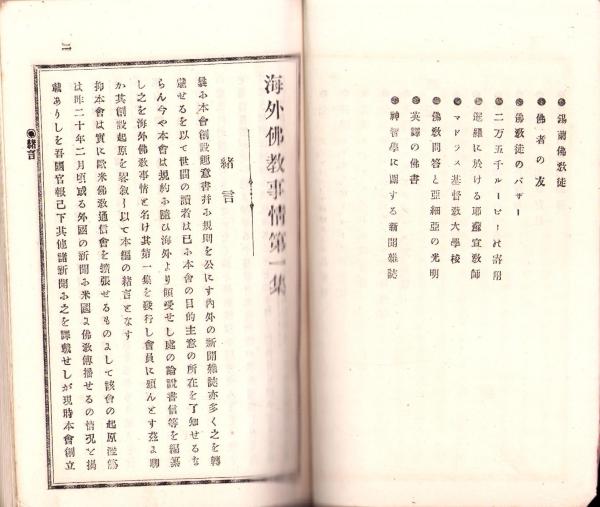 ●錫蘭佛敎徒
●佛者の友
●佛敎徒のバザー
●二万五千ルーピーの寄附
●暹羅に於ける耶蘇宣敎師
●マドラス基督敎大學校
●佛敎問答と亞細亞の光明
●英譯の佛書
●神智學に關する新聞雜誌
海外佛敎事情第一集
緒言
曩ふ本會創設趣意書并ふ規則を公にす內外の新聞雜誌亦多く之を轉
載せるを以て世間の讀者は已ふ本會の目的主意の所在を了知せるな
らん今や本會は規約ふ隨ひ海外より領受せし處の論說書信等を編纂
し之を海外佛敎事情と名け其第一集を發行し會員に頒んとす茲よ聊
か其創設起原を畧敘し以て本編の緒言となす
抑本會は實に歐米佛敎通信會を擴張せるものよして該會の起原濫觴
は昨二十年二月頃或る外國の新聞ふ米國よ佛敎傳播せるの情況を揭
載ありしを吾國官報已下其他諸新聞ふ之を譯載せしが現時本會創立
●緒言
一